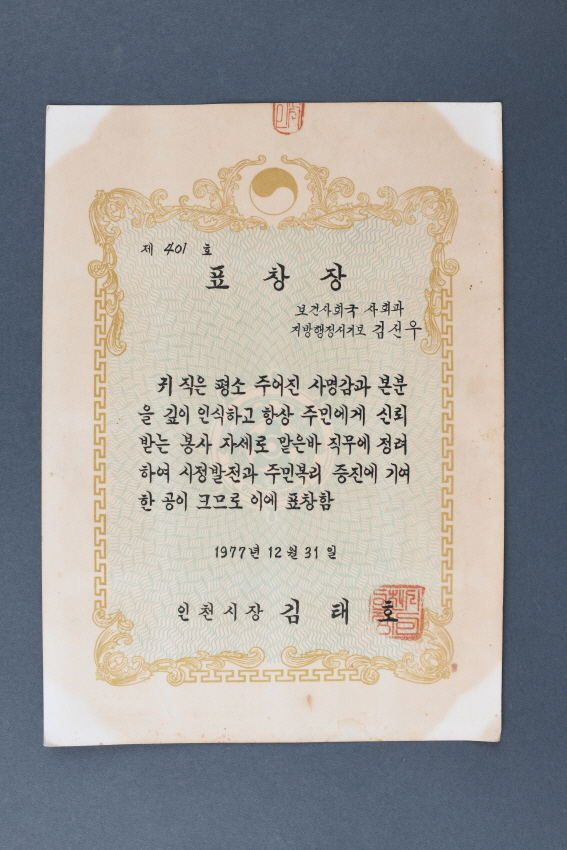 제 401 호
표 창 장
보건사회국 사회과
지방행정서기보 김신우
귀 직은 평소 주어진 사명감과 본분
을 깊이 인식하고 항상 주민에게 신뢰
받는 봉사 자세로 맡은바 직무에 정려
하여 시정발전과 주민복리 증진에 기여
한 공이 크므로 이에 표창함
1977년 12월 31일
인천시장 김 태 호